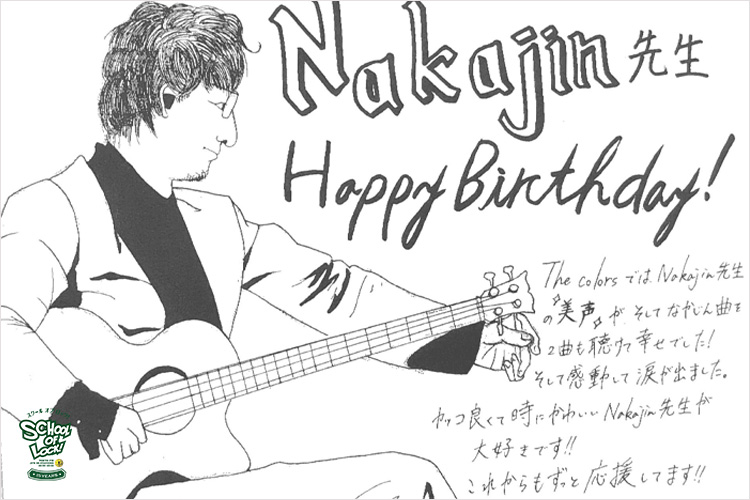 Nakajin先生
Happy Birthday!
The colors では Nakajin先生
の"美声"が そして なかじん曲を
2曲も聴けて幸せでした!
そして感動して涙が出ました。
カッコ良くて時にかわいい Nakajin先生が
大好きです!!
これからもずっと応援してます!!
スクール オブ ロック!
SCHOOL
OF
LOCK!